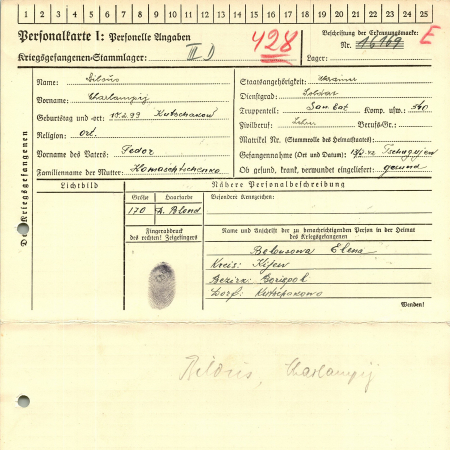 1 2 3 4 5 6 7 8 9 10 11 12 13 14 15 16 17 18 19 20 21 22 23 24 25
Personalkarte I: Personelle Angaben
Kriegsgefangenen-Stammlager: III D
428
Beschriftung der Erkennungsmarke:
Nr. 16169 E
Lager:
Des Kriegsgefangenen
Name: Bilous
Vorname: Charlampij
Geburtstag und -ort: 15.2.99 Kutschakow
Religion: ort.
Vorname des Vaters: Fedor
Familienname der Mutter: Komaschtschenko
Staatsangehörigkeit: Ukraine
Dienstgrad: Soldat
Truppenteil: San. bat Komp. usw.:
Zivilberuf: Berufs-Gr.:
Matrikel Nr. (Stammrolle des Heimatstaates):
Gefangennahme (Ort und Datum):
Ob gesund, krank, verwundet eingeliefert: gesund
Lichtbild
Nähere Personalbeschreibung
Größe Haarfarbe Besondere Kennzeichen:
170 d. Blond
Fingerabdruck
des rechten! Zeigefingers
Name und Anschrift der zu benachrichtigenden Person in der Heimat
des Kriegsgefangenen
Belousowa Elena
Kreis: Kijew
Bezirk: Borispol
Dorf: Kutschakowo
Wenden!
Bilous, Charlampij